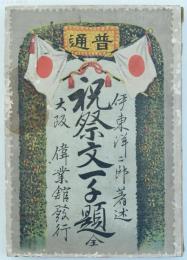 普通
伊東洋二郎著述
祝祭文一千題 全
大阪 偉業館發行